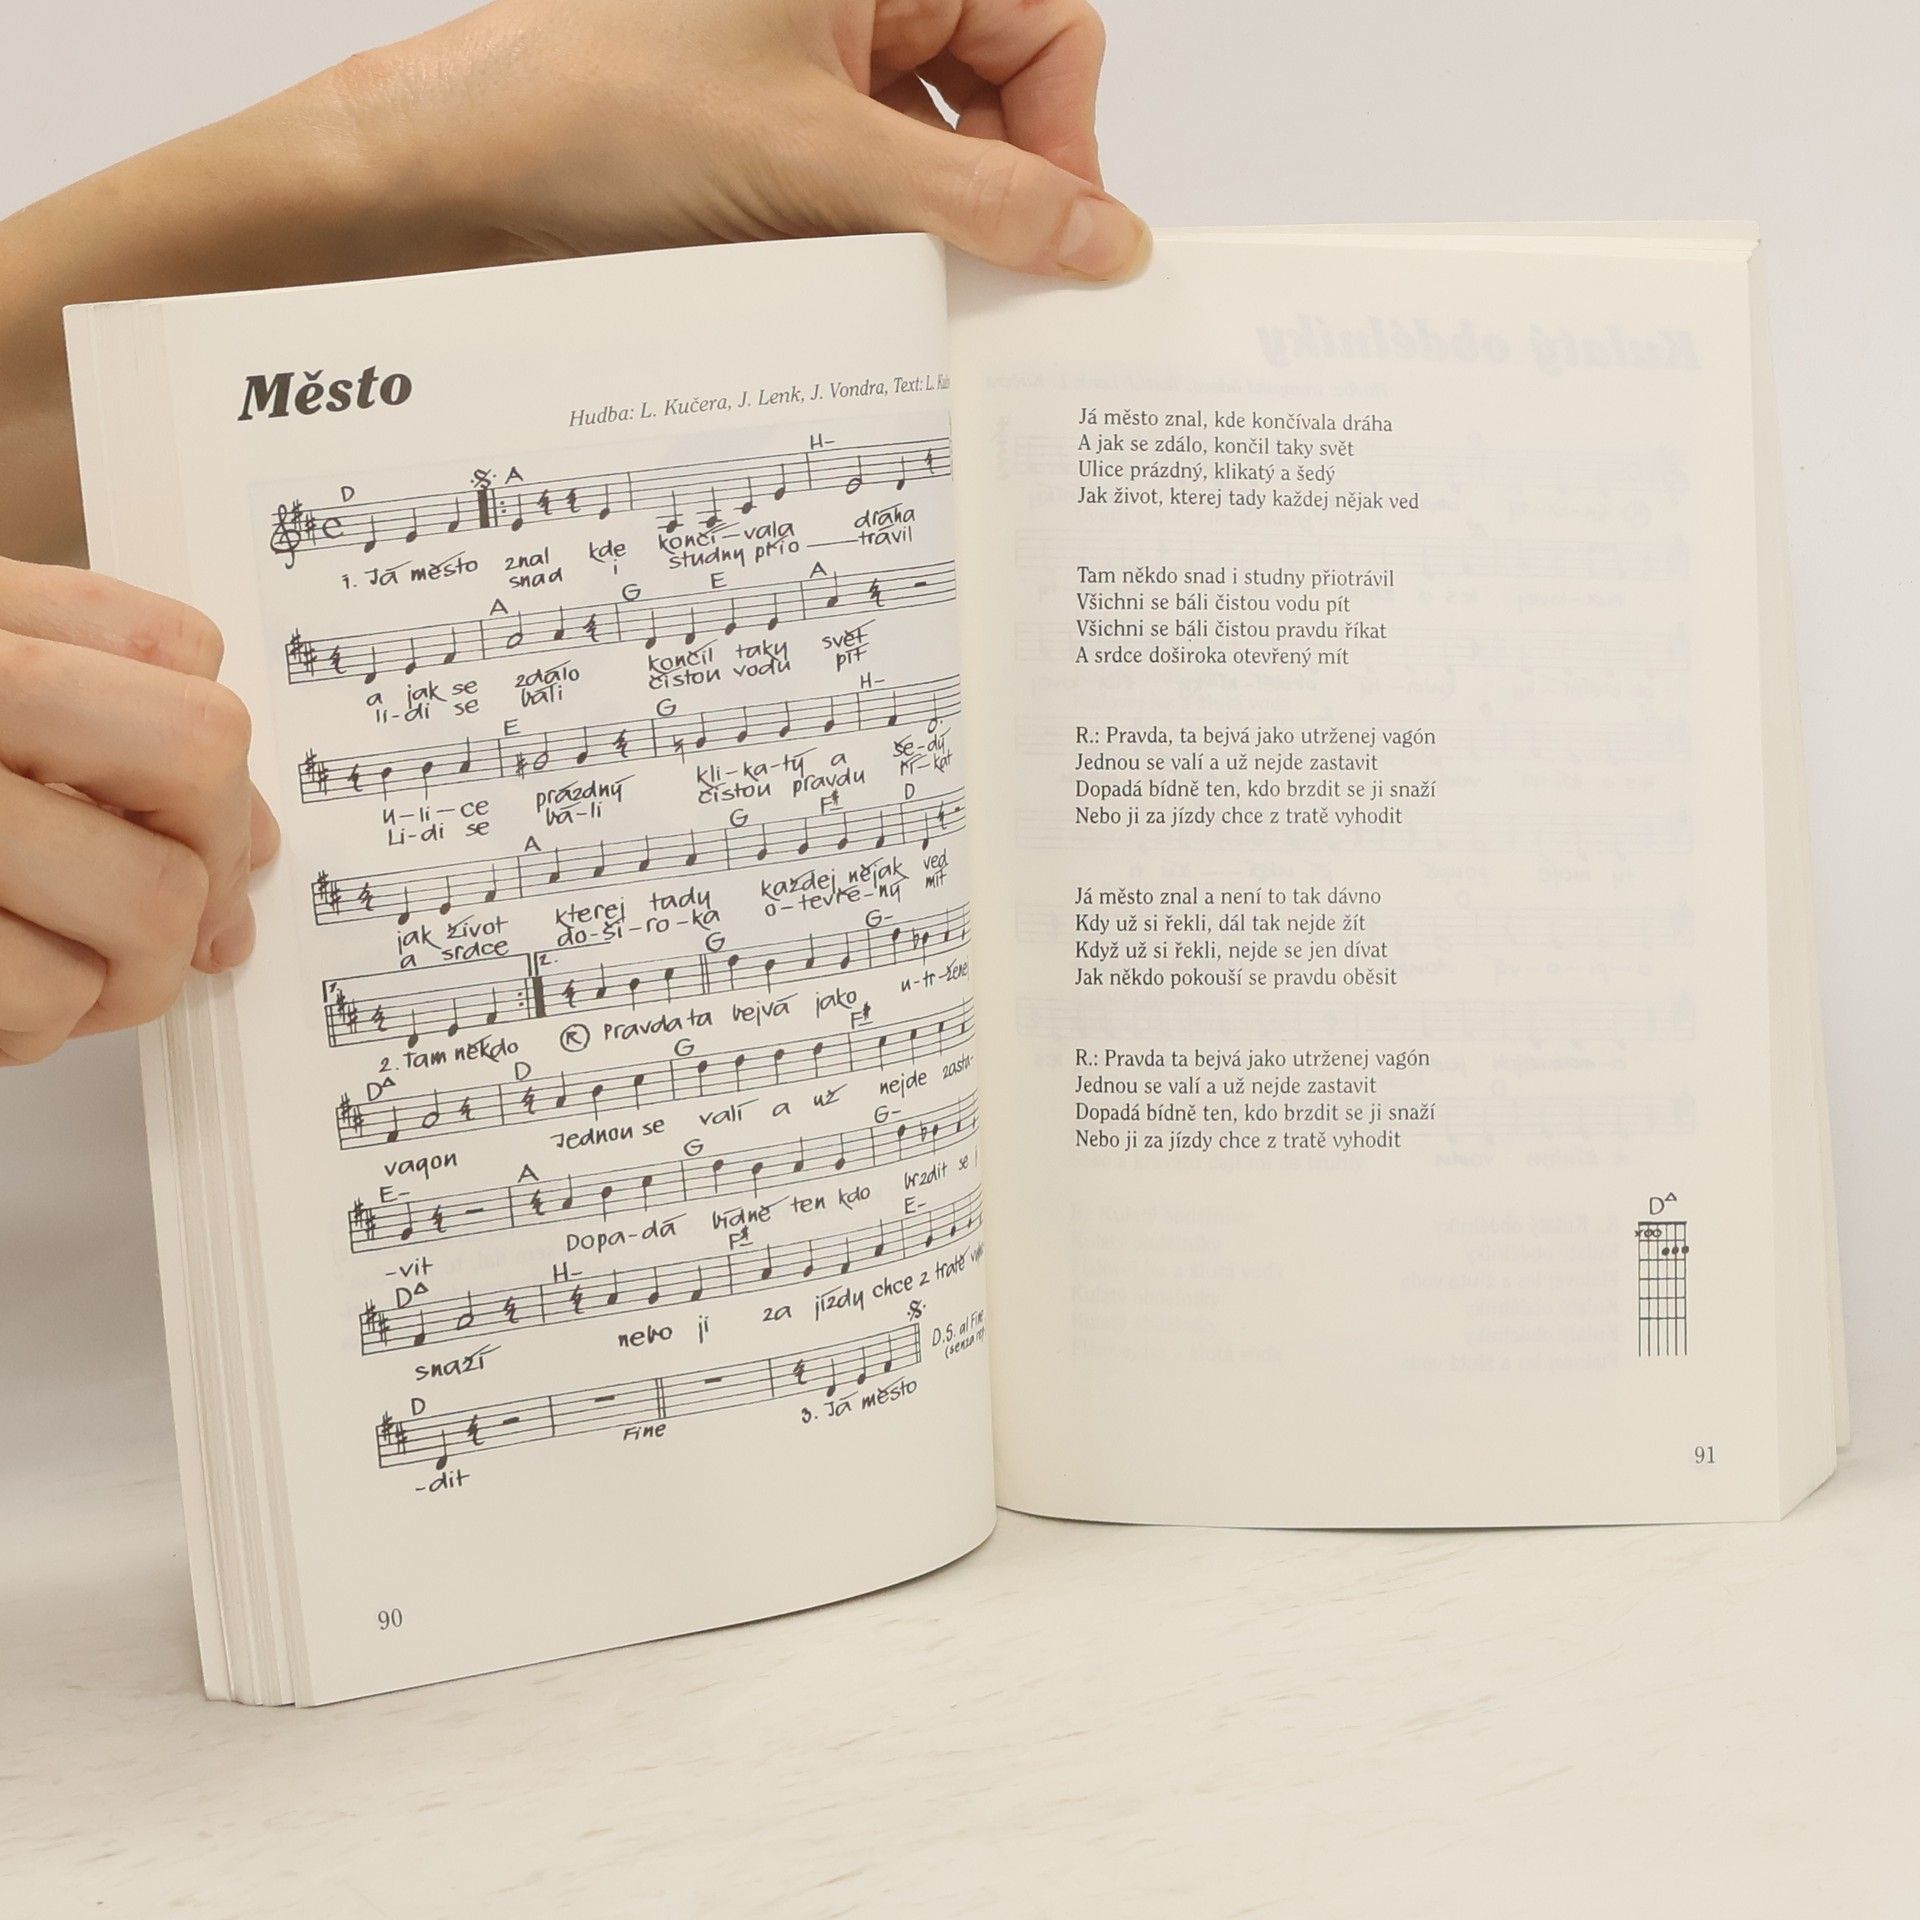 Město
Hudba: L. Kučera, J. Lenk, J. Vondra, Text: L.
D A H-
1. Já město znal kde končí-vala dráha
snad i studny přio-trávil
A G E A
a jak se zdálo končil taky svět
li-di se báli čistou vodu pít
E G H-
u-li-ce prázdný kli-ka-tý a še-dý
Li-di se bá-li čistou pravdu ří-kat
A G F# D
jak život kterej tady každej nějak ved
a srdce do-ši-ro-ka o-tevře-ný mít
1. 2. G G-
2. Tam někdo R Pravda ta bejvá jako u-tr-ženej
D△ D G F#
vagon Jednou se valí a už nejde zasta-
E- A G G-
-vit Dopa-dá bídně ten kdo brzdit se
D△ H- F# E-
snaží nebo ji za jízdy chce z tratě
D D.S. al Fine
-dit Fine 3. Já město
90
Já město znal, kde končívala dráha
A jak se zdálo, končil taky svět
Ulice prázdný, klikatý a šedý
Jak život, kterej tady každej nějak ved
Tam někdo snad i studny přiotrávil
Všichni se báli čistou vodu pít
Všichni se báli čistou pravdu říkat
A srdce doširoka otevřený mít
R.: Pravda, ta bejvá jako utrženej vagón
Jednou se valí a už nejde zastavit
Dopadá bídně ten, kdo brzdit se ji snaží
Nebo ji za jízdy chce z tratě vyhodit
Já město znal a není to tak dávno
Kdy už si řekli, dál tak nejde žít
Když už si řekli, nejde se jen dívat
Jak někdo pokouší se pravdu oběsit
R.: Pravda ta bejvá jako utrženej vagón
Jednou se valí a už nejde zastavit
Dopadá bídně ten, kdo brzdit se ji snaží
Nebo ji za jízdy chce z tratě vyhodit
D△
91